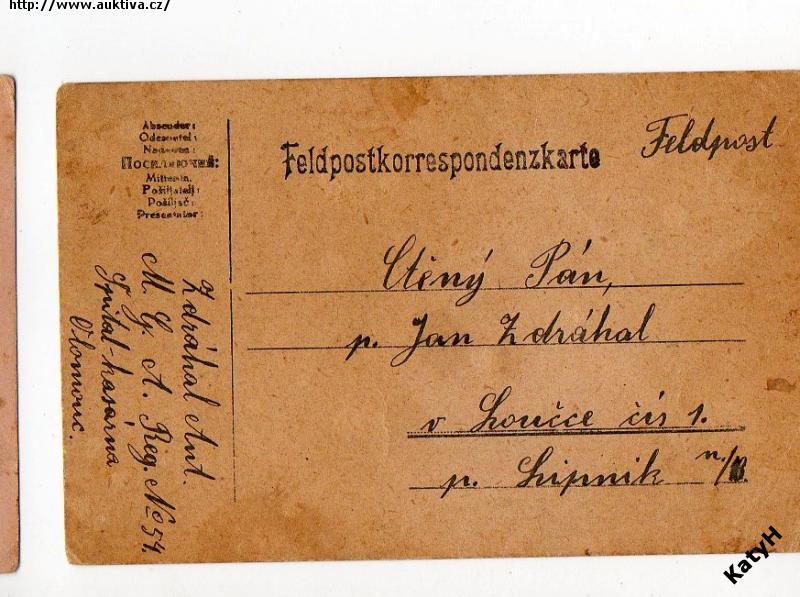 http://www.auktiva.cz/
Absender:
Odesyłatel:
Mittente.
Pošiljatelj:
Pošiljač:
Presentator:
Feldpostkorrespondenzkarte
Feldpost
Ctěný Pán,
p. Jan Zdráhal
v Loučce čís 1.
p. Lipnik n./B.
Zdráhal Ant.
M. G. A. Reg. No 54.
Spital-kasárna
Olomouc.
KatyH